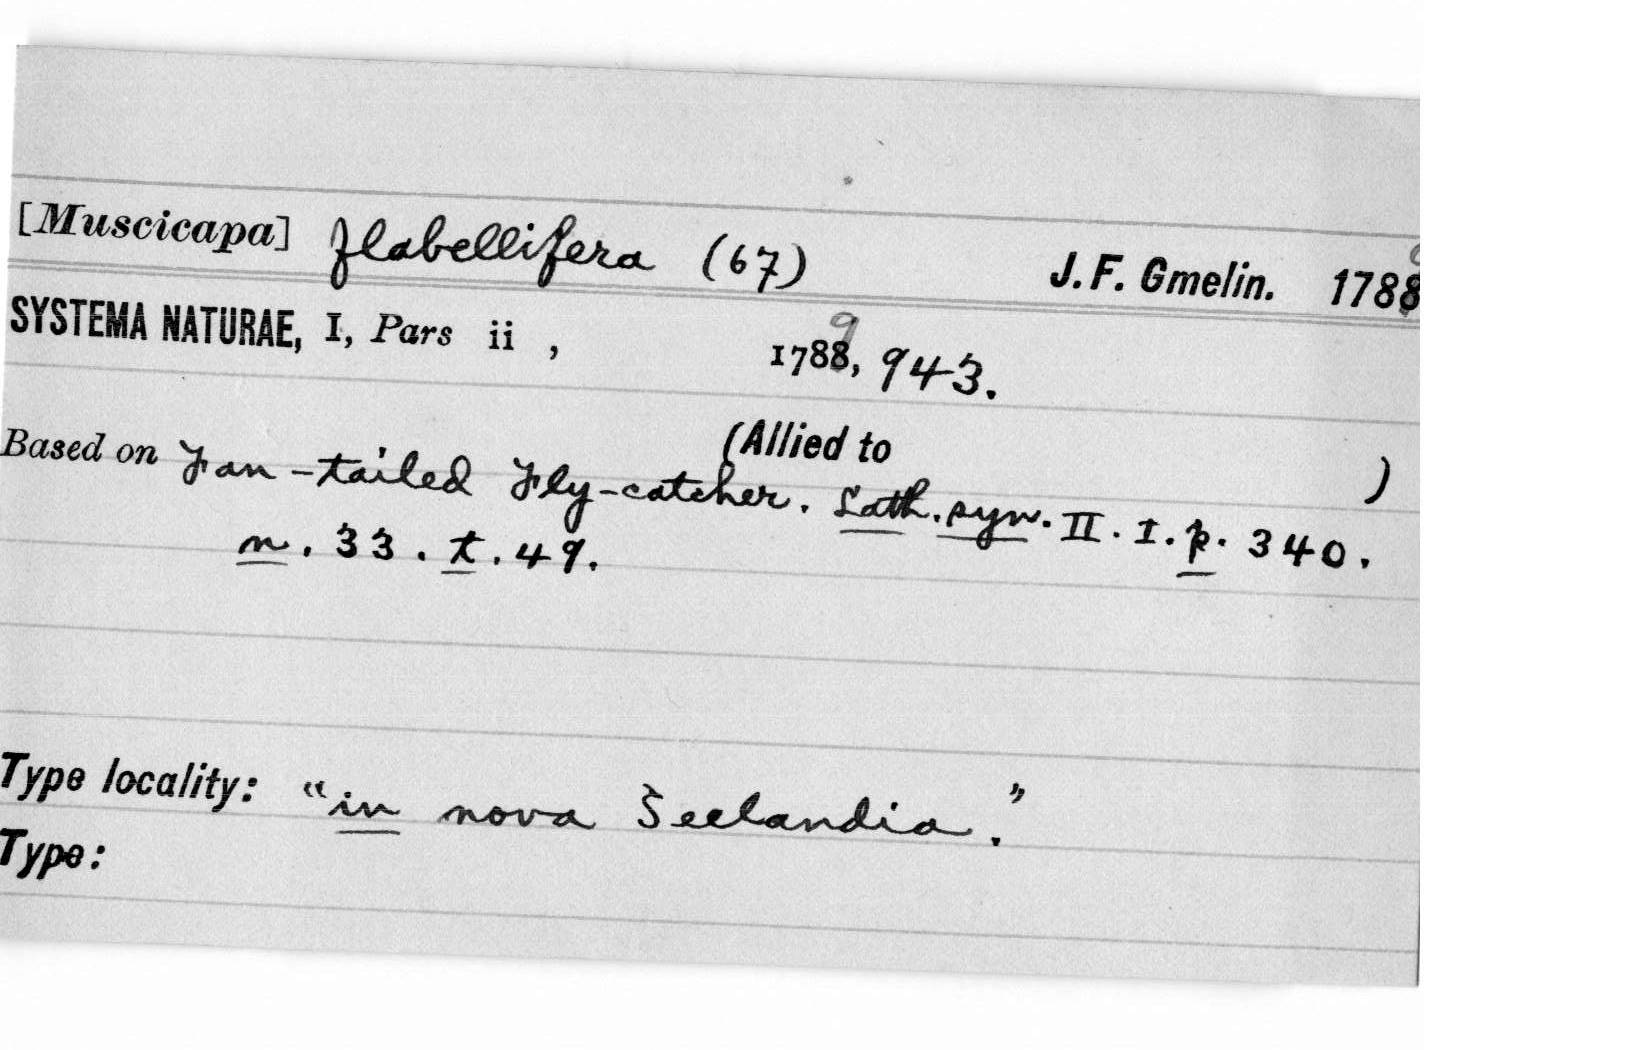 [Muscicapa] flabellifera (67) J. F. Gmelin. 1789
SYSTEMA NATURAE, I, Pars ii , 1789, 943.
(Allied to )
Based on Fan-tailed Fly-catcher. Lath. syn. II. I. p. 340.
n. 33. t. 49.
Type locality: "in nova Seelandia."
Type: